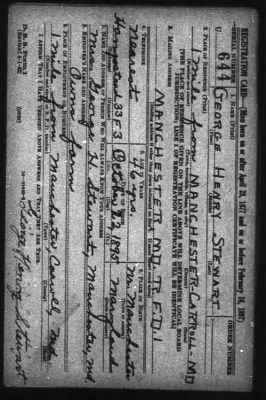 REGISTRATION CARD—(Men born on or after April 28, 1877 and on or before February 16, 1897)
SERIAL NUMBER 1. NAME (Print) ORDER NUMBER
U 644 GEORGE HENRY STEWART
2. PLACE OF RESIDENCE (Print)
1 Mile from MANCHESTER CARROLL MD
[THE PLACE OF RESIDENCE GIVEN ON THE LINE ABOVE WILL DETERMINE LOCAL BOARD
JURISDICTION; LINE 2 OF REGISTRATION CERTIFICATE WILL BE IDENTICAL]
3. MAILING ADDRESS
MANCHESTER MD. R.F.D. 1
4. TELEPHONE 5. AGE IN YEARS 6. PLACE OF BIRTH
Nearest 46 yrs. Nr. Manchester
DATE OF BIRTH
Hampstead 33F3 1895 Maryland
7. NAME AND ADDRESS OF PERSON WHO WILL ALWAYS KNOW YOUR ADDRESS
Mrs. George H. Stewart, Manchester, Md.
8. EMPLOYER'S NAME AND ADDRESS
Own farm
9. PLACE OF EMPLOYMENT OR BUSINESS
1 Mile from Manchester, Carroll, Md.
I AFFIRM THAT I HAVE VERIFIED ABOVE ANSWERS AND THAT THEY ARE TRUE.
D. S. S. Form 1
(over)
George Henry Stewart